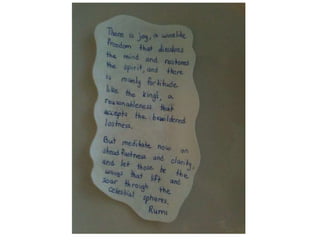 There is joy, a winelike
freedom that dissolves
the mind and restores
the spirit, and there
is manly fortitude
like the king's, a
reasonableness that
accepts the bewildered
lostness.
But meditate now on
steadfastness and clarity,
and let those be the
wings that lift and
soar through the
celestial spheres.
Rumi